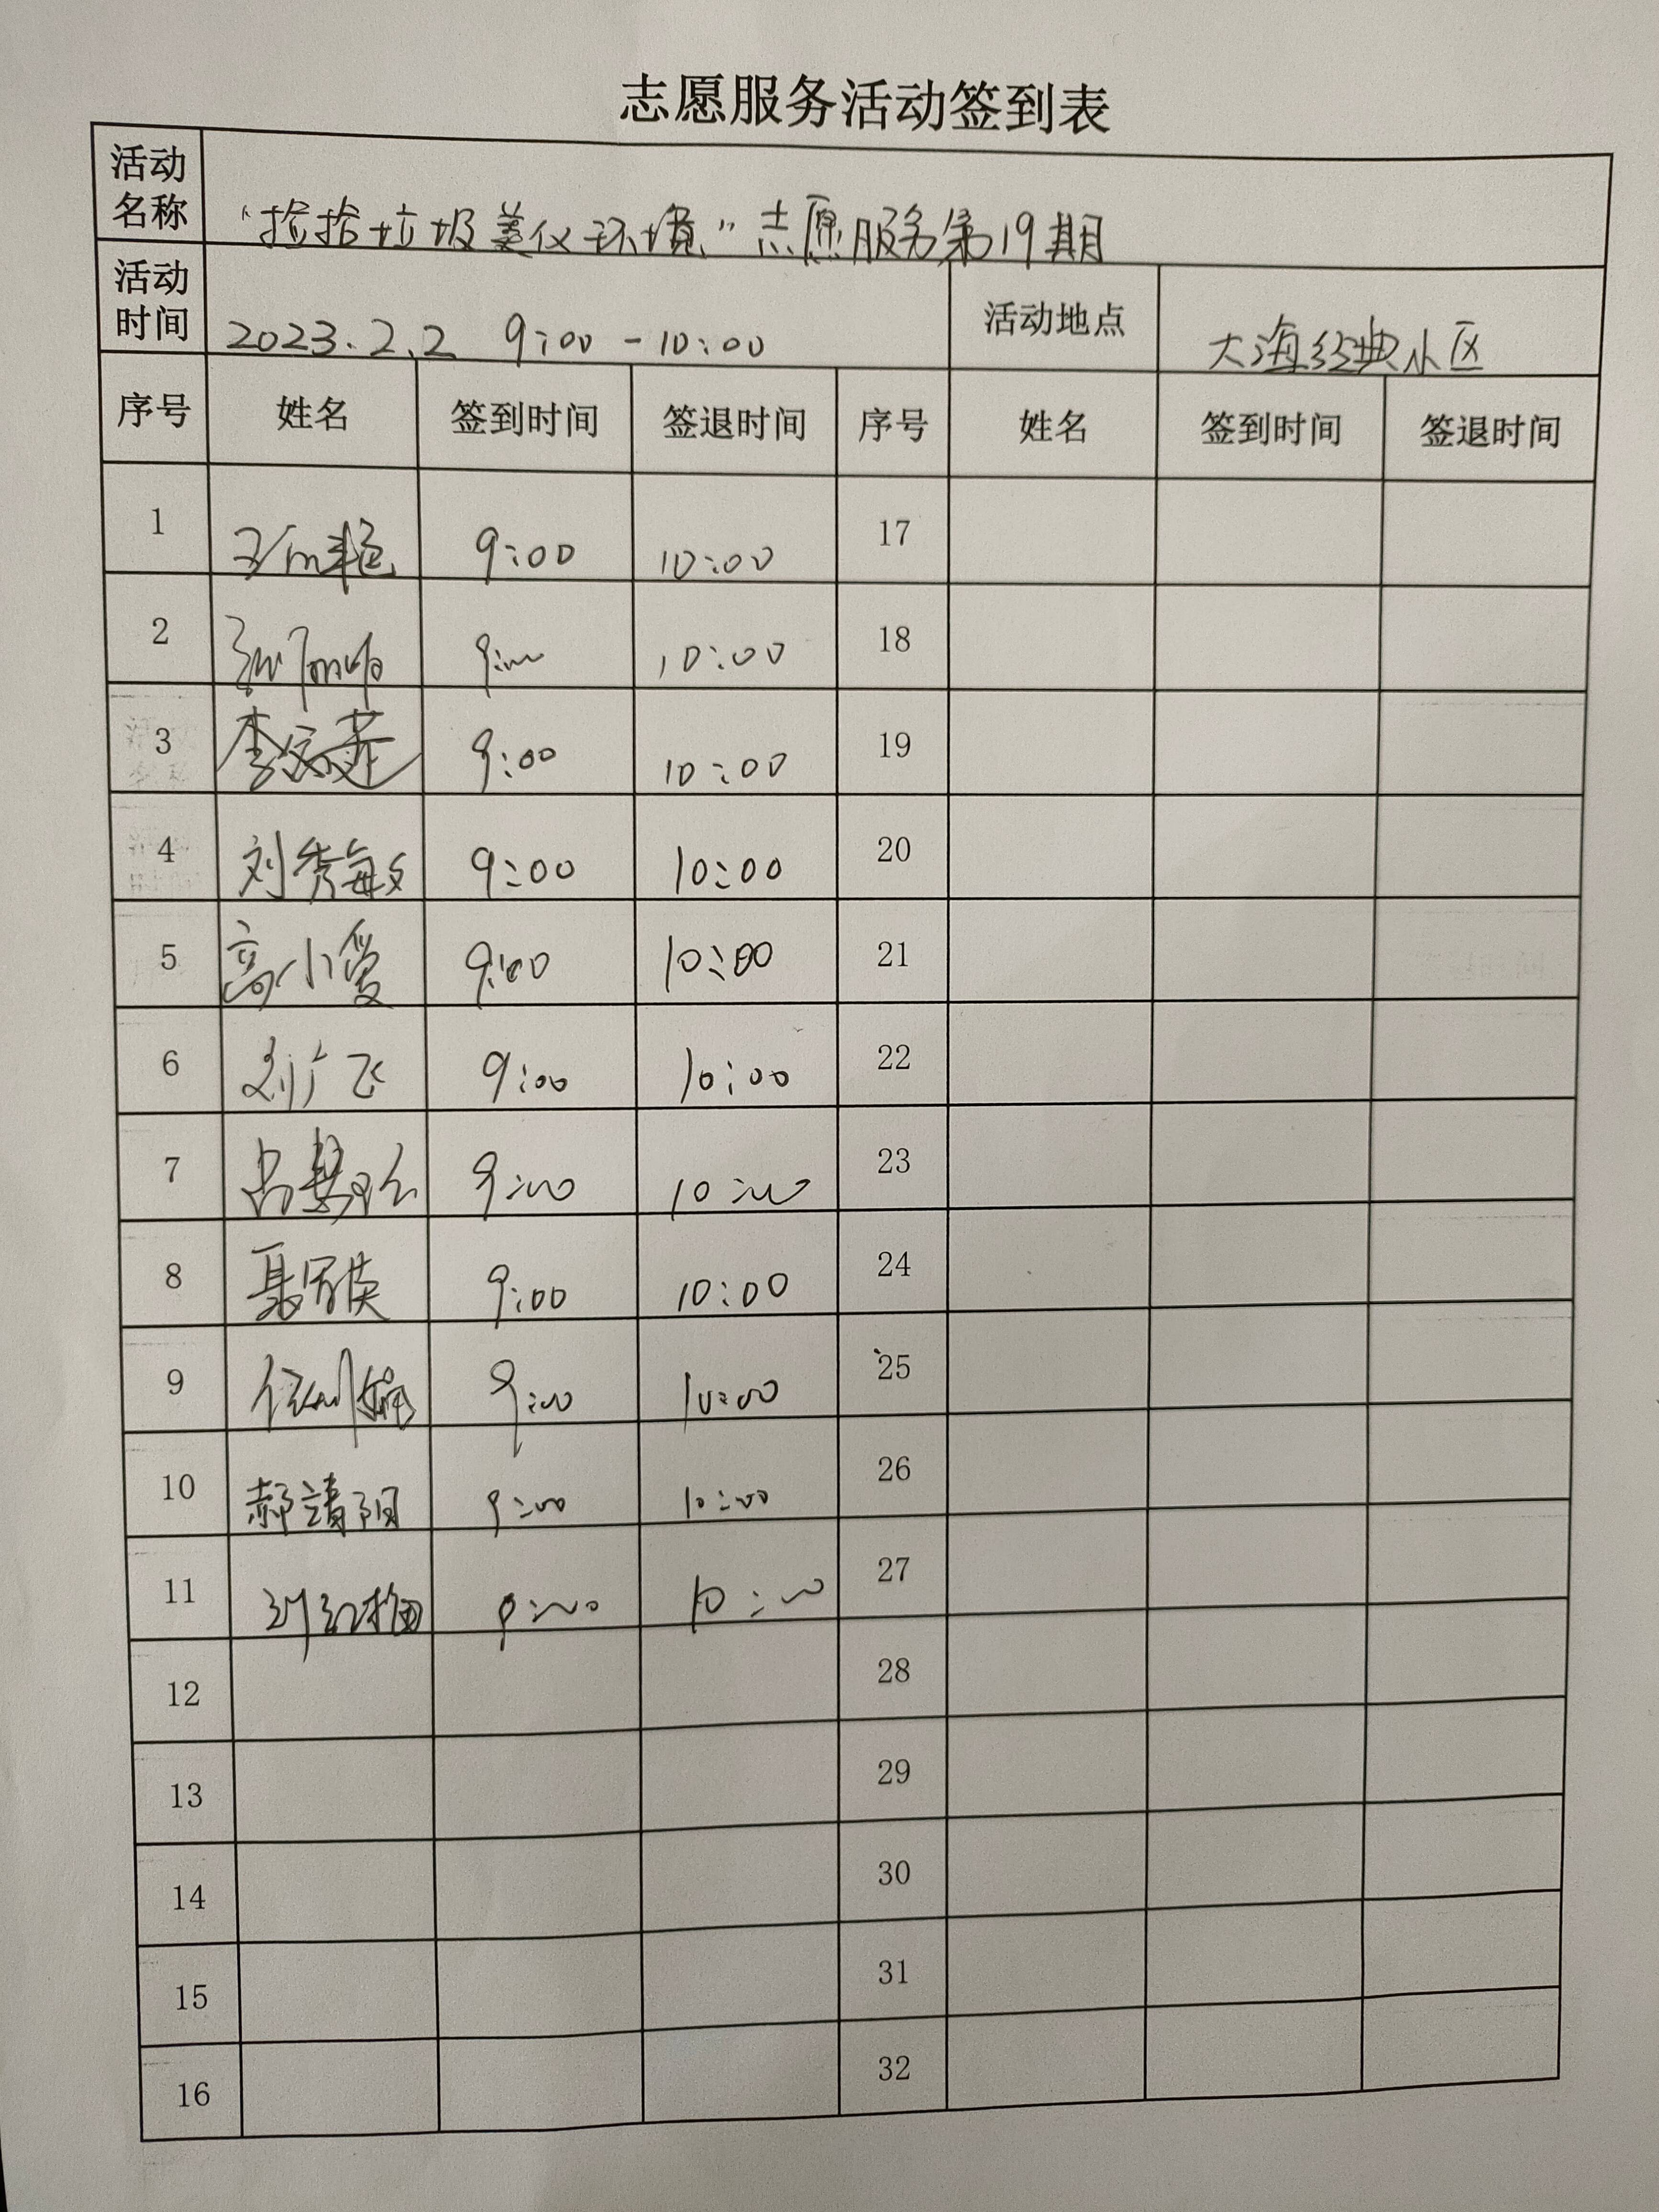 志愿服务活动签到表
活动名称 "捡拾垃圾美仪环境"志愿服务第19期
活动时间 2023.2.2 9:00-10:00 活动地点 大海经典小区
序号 姓名 签到时间 签退时间 序号 姓名 签到时间 签退时间
1 9:00 10:00 17
2 9:00 10:00 18
3 李 9:00 10:00 19
4 刘秀敏 9:00 10:00 20
5 高小爱 9:00 10:00 21
6 刘广飞 9:00 10:00 22
7 吕 9:00 10:00 23
8 聂 英 9:00 10:00 24
9 任 娟 9:00 10:00 25
10 郝靖阳 9:00 10:00 26
11 刘红梅 9:00 10:00 27
12 28
13 29
14 30
15 31
16 32